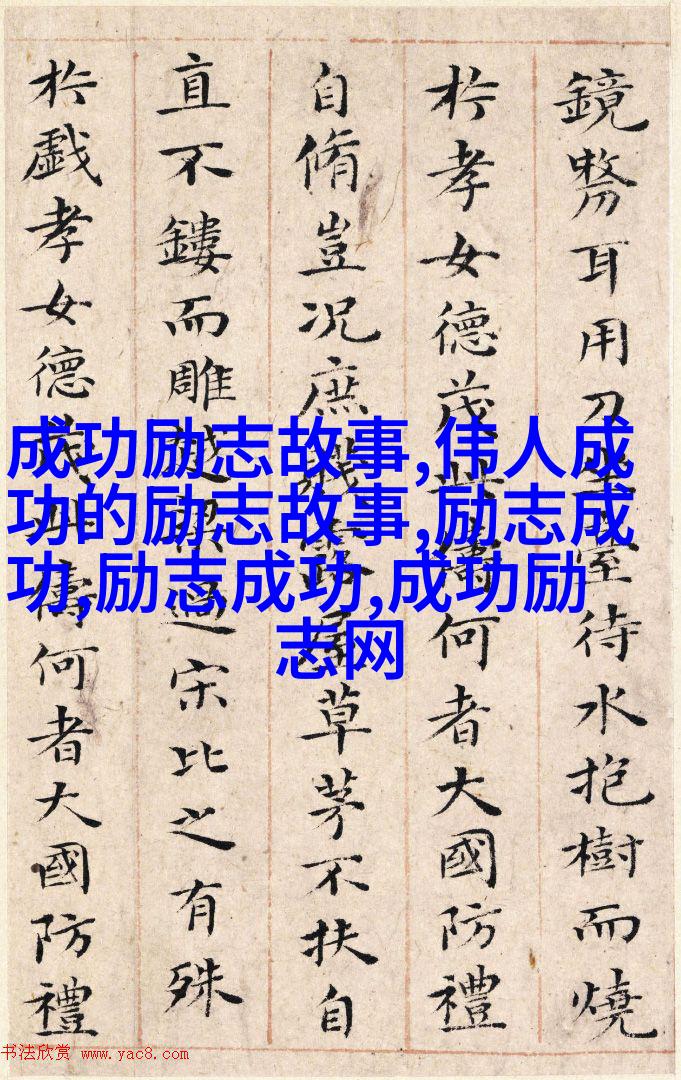 鏡剺耳用刀坐臺待水抱樹而燒
扵孝女德茂此儔何者大國防禮
自脩豈况庶賤露屋草茅不扶自
直不鏤而雕越梁過宋比之有殊
扵戯孝女德茂此儔何者大國防禮
成功励志故事,伟人成
功的励志故事,励志成
功,励志成功,成功励
志网
书法欣赏 www.yac8.com